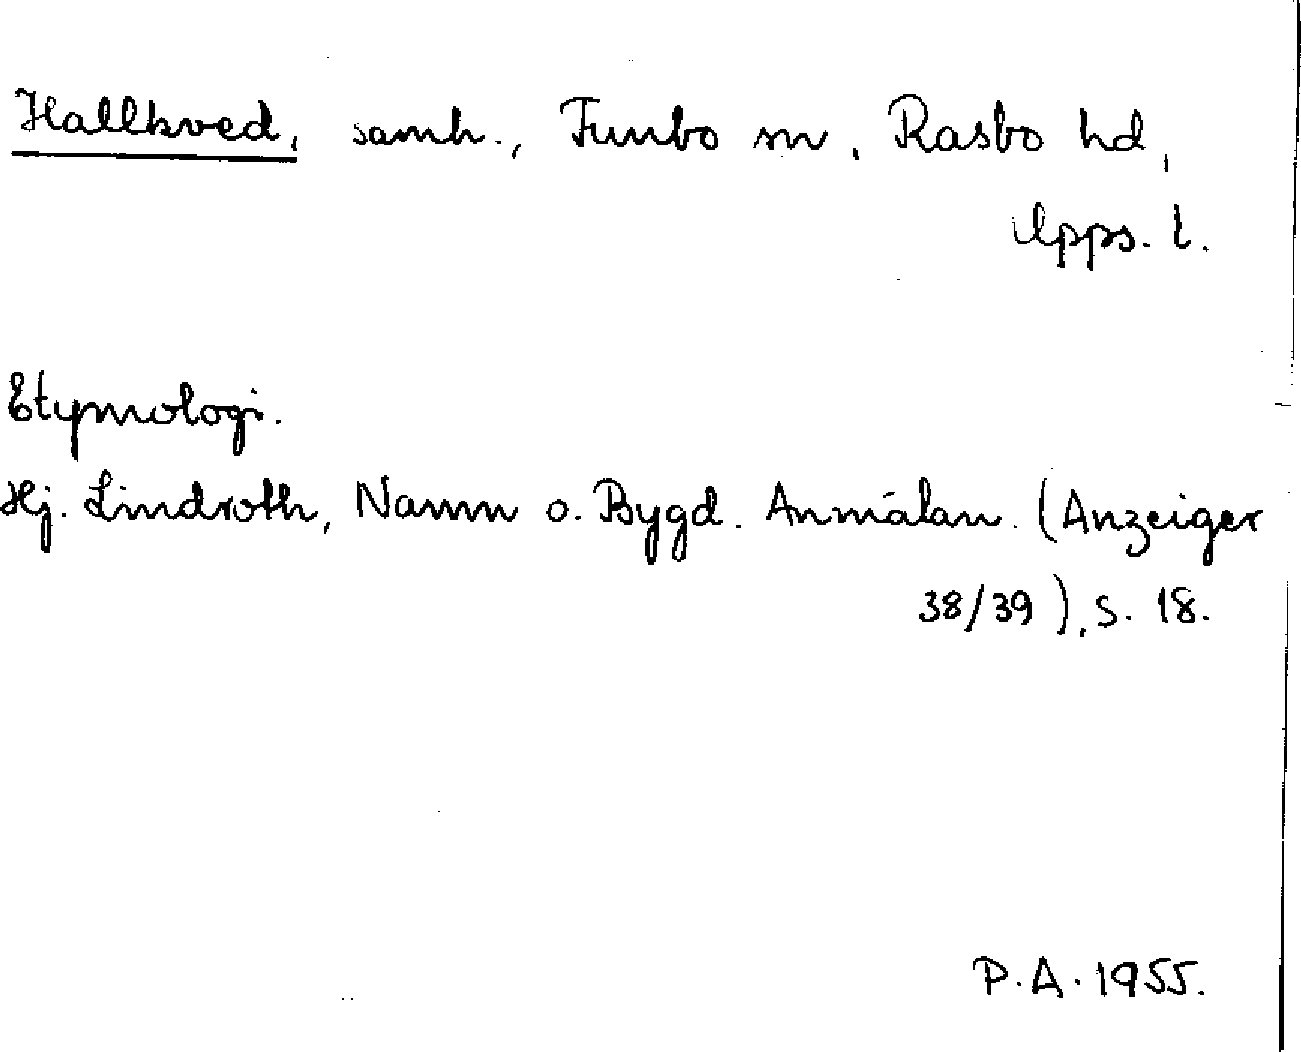 Hallkved, samh., Funbo sn, Rasbo hd,
Upps. l.
Etymologi.
Hj. Lindroth, Namn o. Bygd. Anmälan. (Anzeiger
38/39), s. 18.
P.A. 1955.